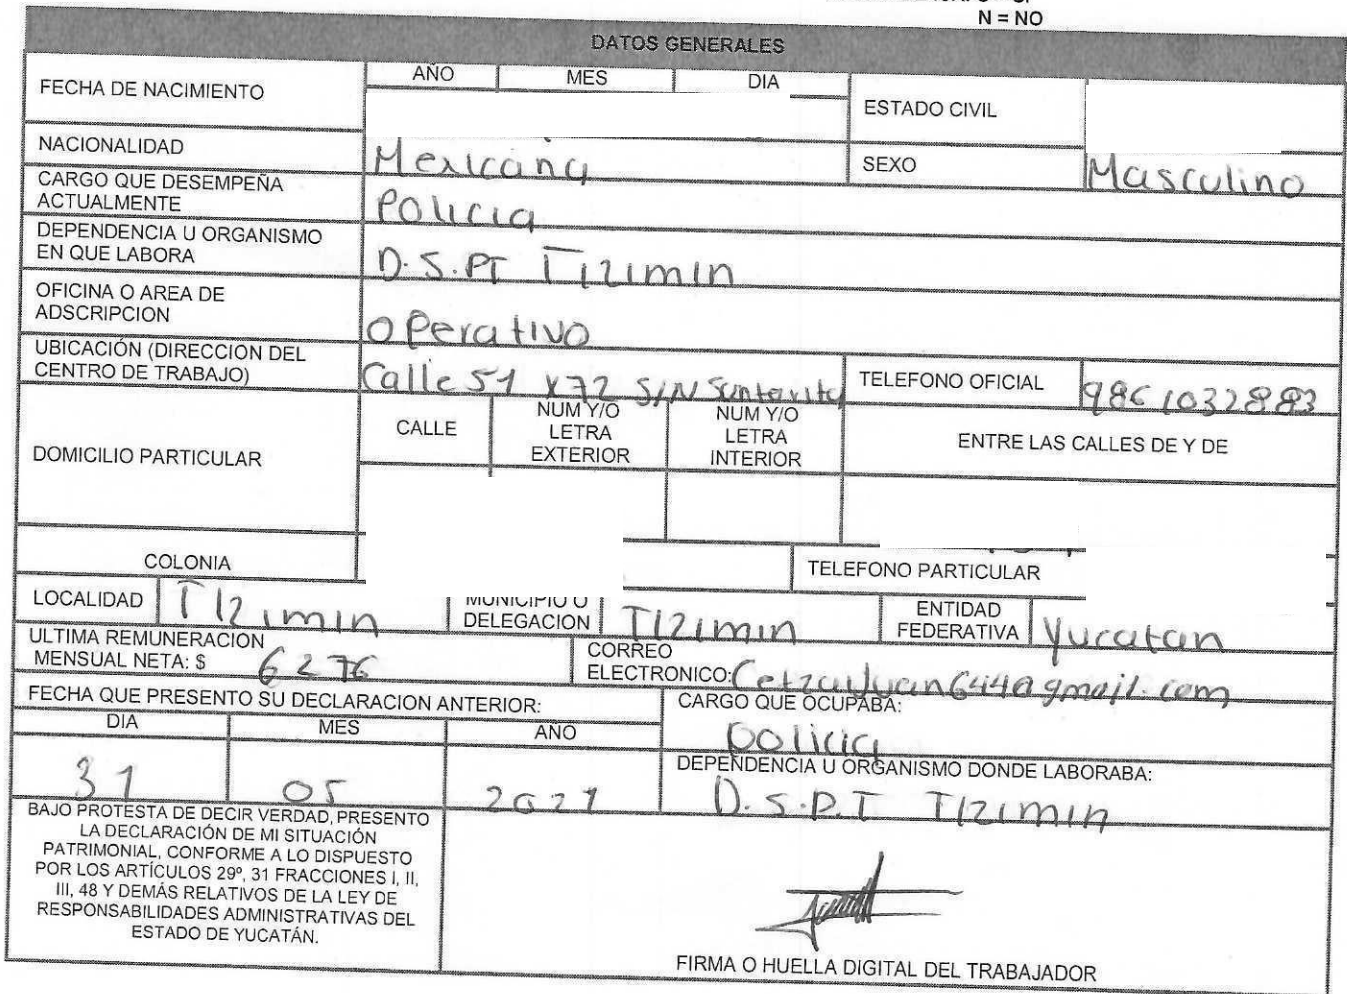 N = NO
DATOS GENERALES
FECHA DE NACIMIENTO
AÑO MES DIA
ESTADO CIVIL
NACIONALIDAD Mexicana SEXO Masculino
CARGO QUE DESEMPEÑA
ACTUALMENTE
Policia
DEPENDENCIA U ORGANISMO
EN QUE LABORA
D.S.PT Tizimin
OFICINA O AREA DE
ADSCRIPCION
Operativo
UBICACIÓN (DIRECCION DEL
CENTRO DE TRABAJO)
Calle 51 x72 S/N
TELEFONO OFICIAL 9861032883
DOMICILIO PARTICULAR
CALLE
NUM Y/O
LETRA
EXTERIOR
NUM Y/O
LETRA
INTERIOR
ENTRE LAS CALLES DE Y DE
COLONIA
TELEFONO PARTICULAR
LOCALIDAD Tizimin
MUNICIPIO O
DELEGACION
Tizimin
ENTIDAD
FEDERATIVA
Yucatan
ULTIMA REMUNERACION
MENSUAL NETA: $ 6276
CORREO
ELECTRONICO:
FECHA QUE PRESENTO SU DECLARACION ANTERIOR:
DIA MES AÑO
31 05 2021
CARGO QUE OCUPABA:
policia
DEPENDENCIA U ORGANISMO DONDE LABORABA:
D.S.P.T Tizimin
BAJO PROTESTA DE DECIR VERDAD, PRESENTO
LA DECLARACIÓN DE MI SITUACIÓN
PATRIMONIAL, CONFORME A LO DISPUESTO
POR LOS ARTÍCULOS 29º, 31 FRACCIONES I, II,
III, 48 Y DEMÁS RELATIVOS DE LA LEY DE
RESPONSABILIDADES ADMINISTRATIVAS DEL
ESTADO DE YUCATÁN.
FIRMA O HUELLA DIGITAL DEL TRABAJADOR